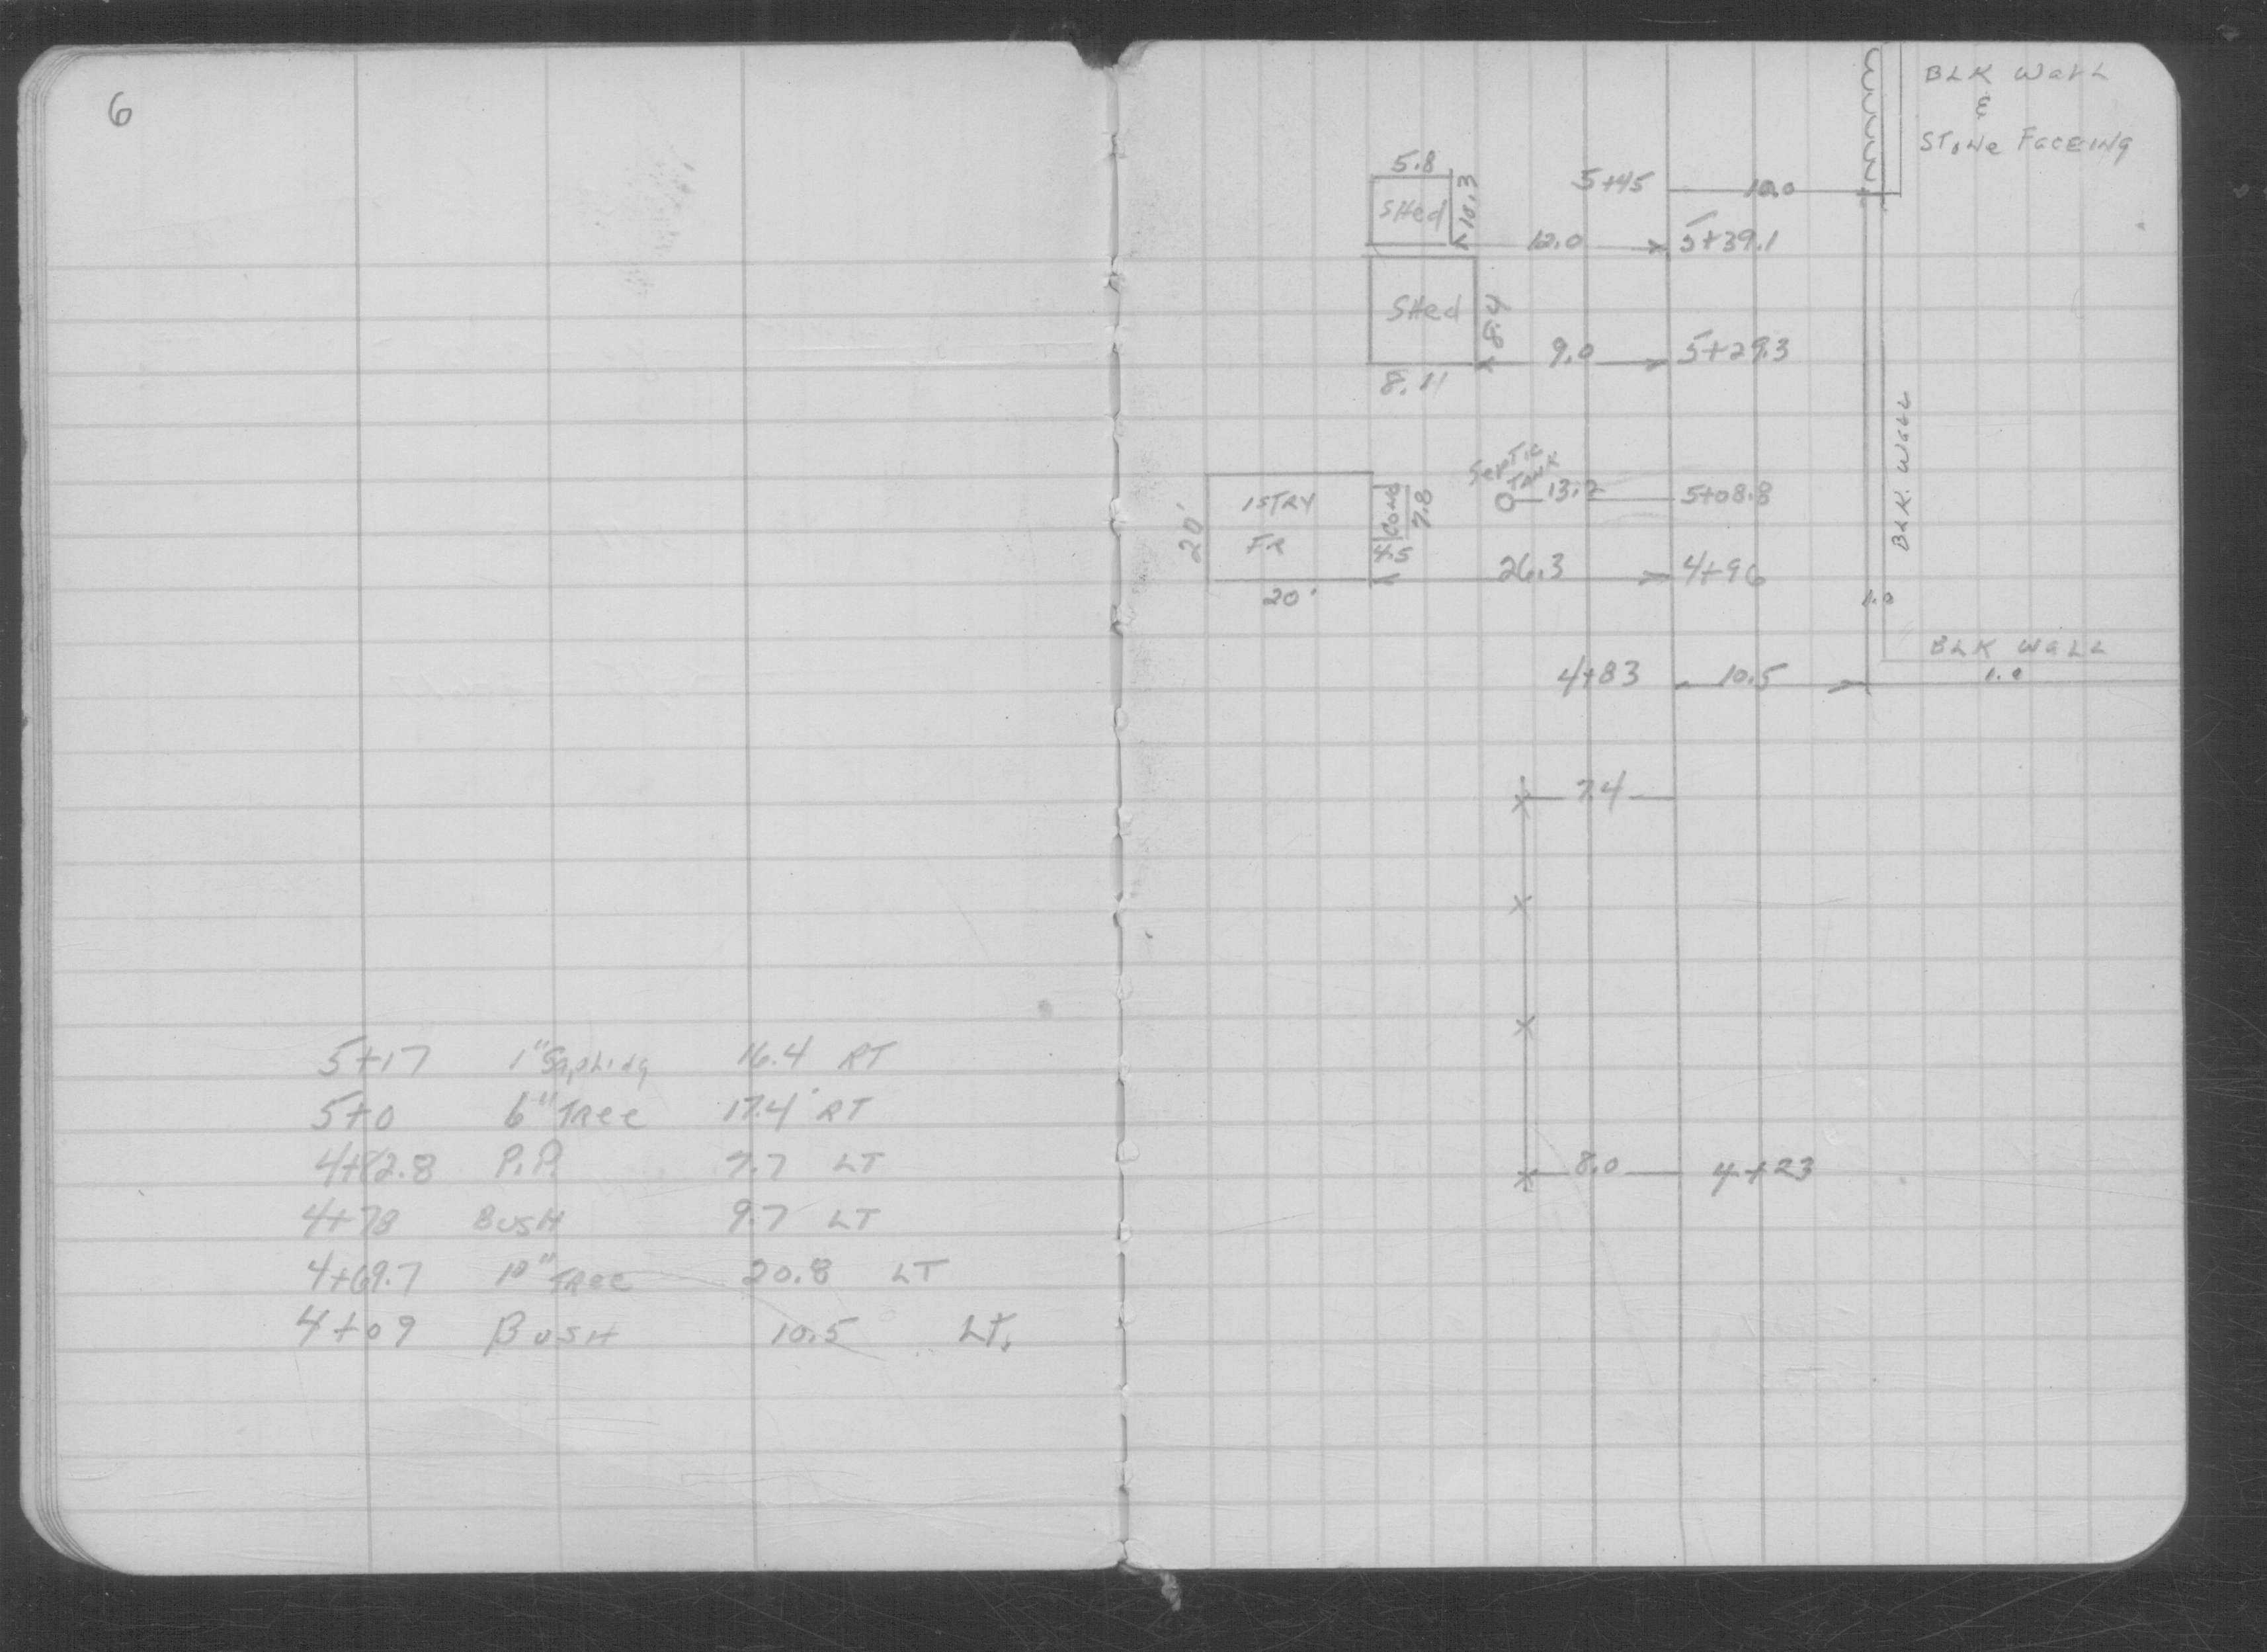 6
5+17 1" Sapling 16.4 RT
5+0 6" Tree 17.4 RT
4+82.8 P.P. 7.7 LT
4+78 BUSH 9.7 LT
4+69.7 10" Tree 20.8 LT
4+09 BUSH 10.5 LT.
BLK WALL
&
STONE FACEING
5.8
SHed
10.3
5+45
10.0
12.0
5+39.1
SHed
8.4
9.0
5+29.3
8.11
BLK. WALL
SepTic
TANK
13.2
5+08.8
1 STRY
FR
CONC
7.8
4.5
20'
20'
26.3
4+96
1.0
BLK WALL
1.0
4+83
10.5
7.4
8.0
4+23